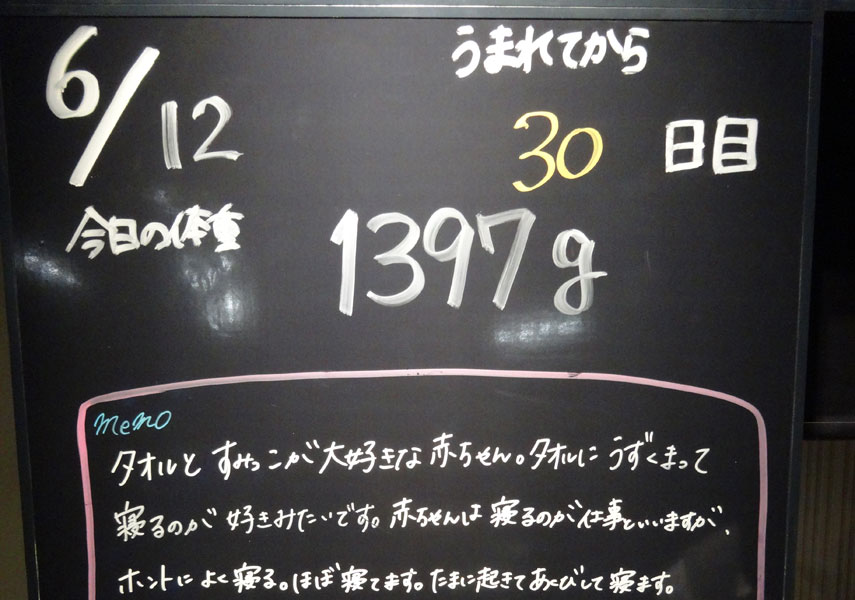 6/12
うまれてから
30日目
今日の体重
1397g
memo
タオルと すみっこが大好きな赤ちゃん。タオルに うずくまって
寝るのが 好きみたいです。赤ちゃんは 寝るのが仕事といいますが、
ホントに よく寝る。ほぼ寝てます。たまに起きてあくびして寝ます。